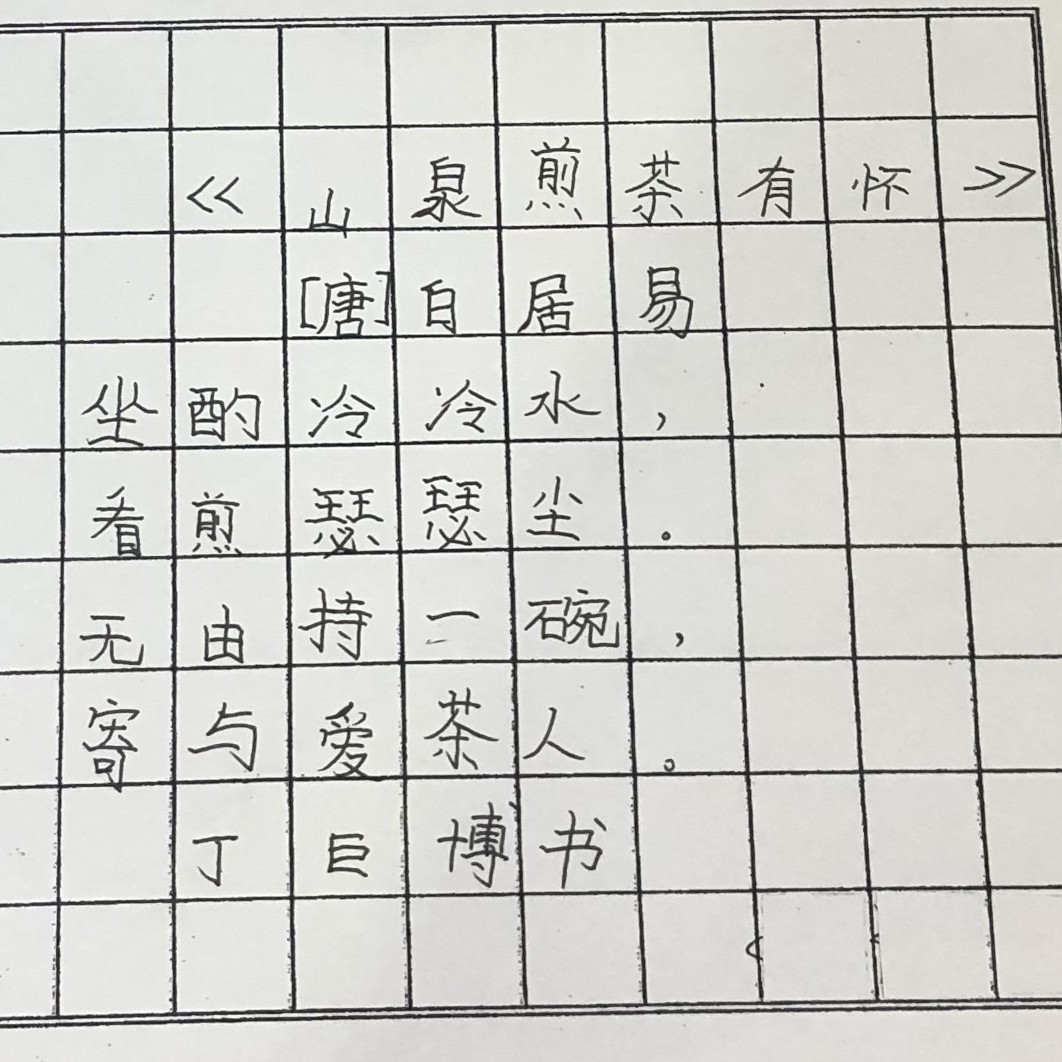 《山泉煎茶有怀》
[唐]白居易
坐酌冷冷水，
看煎瑟瑟尘。
无由持一碗，
寄与爱茶人。
丁巨博书